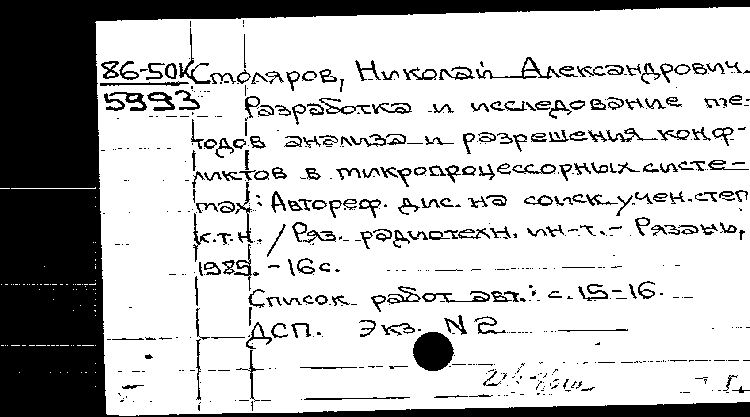 86-50К Столяров, Николай Александрович.
5993 Разработка и исследование ме-
тодов анализа и разрешения конф-
ликтов в микропроцессорных систе-
мах: Автореф. дис. на соиск. учен. степ
к.т.н. / Ряз. радиотехн. ин-т. - Рязань,
1985. - 16 с.
Список работ авт.: с. 15-16.
ДСП. Экз. N 2